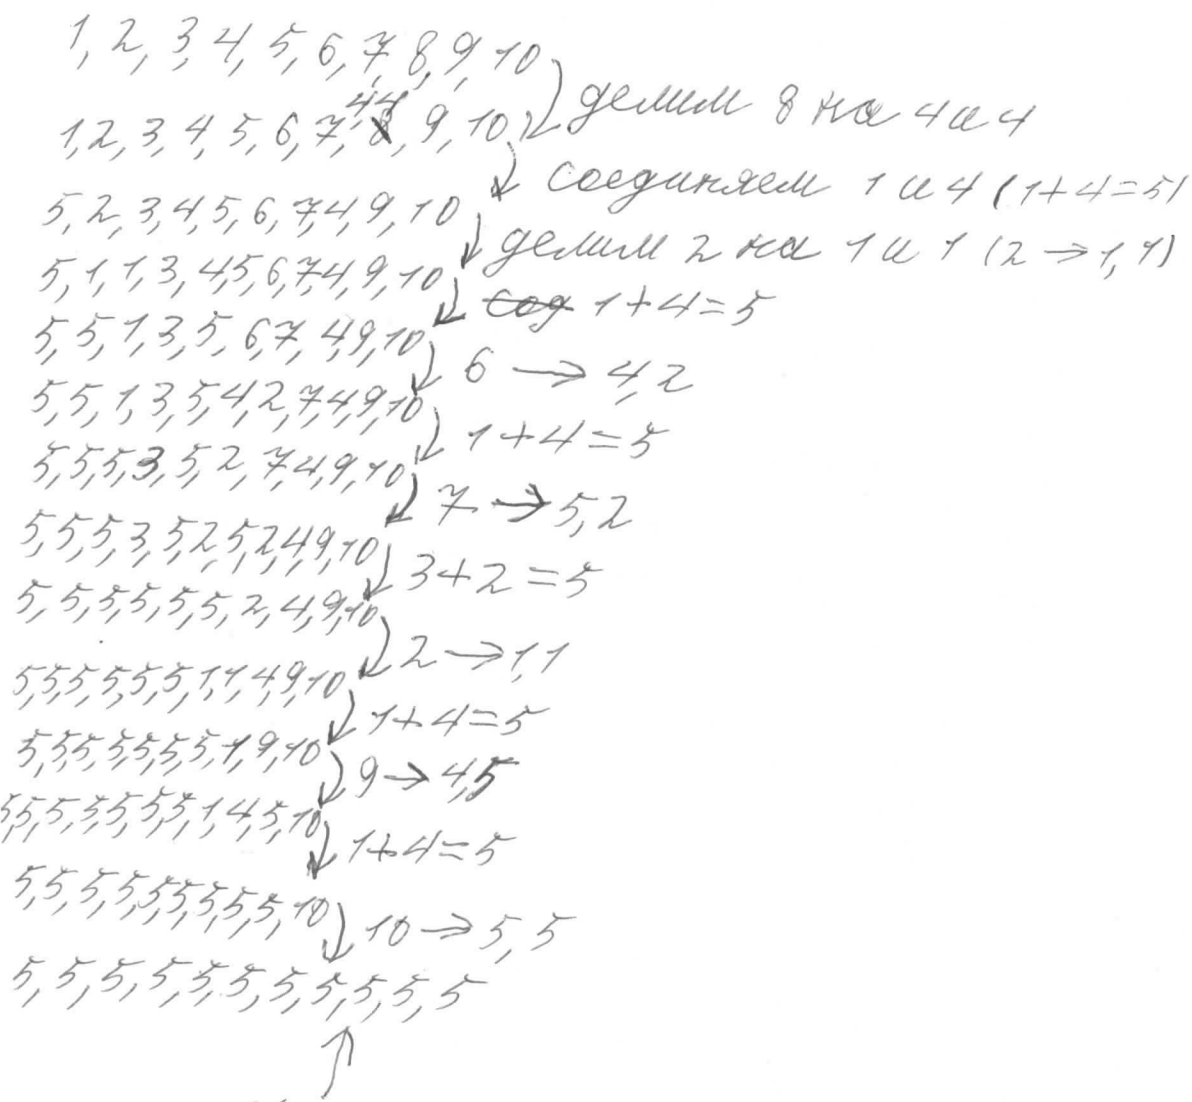 1, 2, 3, 4, 5, 6, 7, 8, 9, 10
делим 8 на 4 и 4
1, 2, 3, 4, 5, 6, 7, 4 4, 9, 10
соединяем 1 и 4 (1+4=5)
5, 2, 3, 4, 5, 6, 7, 4, 9, 10
делим 2 на 1 и 1 (2 → 1, 1)
5, 1, 1, 3, 4, 5, 6, 7, 4, 9, 10
1+4=5
5, 5, 1, 3, 5, 6, 7, 4, 9, 10
6 → 4, 2
5, 5, 1, 3, 5, 4, 2, 7, 4, 9, 10
1+4=5
5, 5, 5, 3, 5, 2, 7, 4, 9, 10
7 → 5, 2
5, 5, 5, 3, 5, 2, 5, 2, 4, 9, 10
3+2=5
5, 5, 5, 5, 5, 5, 2, 4, 9, 10
2 → 1, 1
5, 5, 5, 5, 5, 5, 1, 1, 4, 9, 10
1+4=5
5, 5, 5, 5, 5, 5, 5, 1, 9, 10
9 → 4, 5
5, 5, 5, 5, 5, 5, 5, 1, 4, 5, 10
1+4=5
5, 5, 5, 5, 5, 5, 5, 5, 5, 10
10 → 5, 5
5, 5, 5, 5, 5, 5, 5, 5, 5, 5, 5